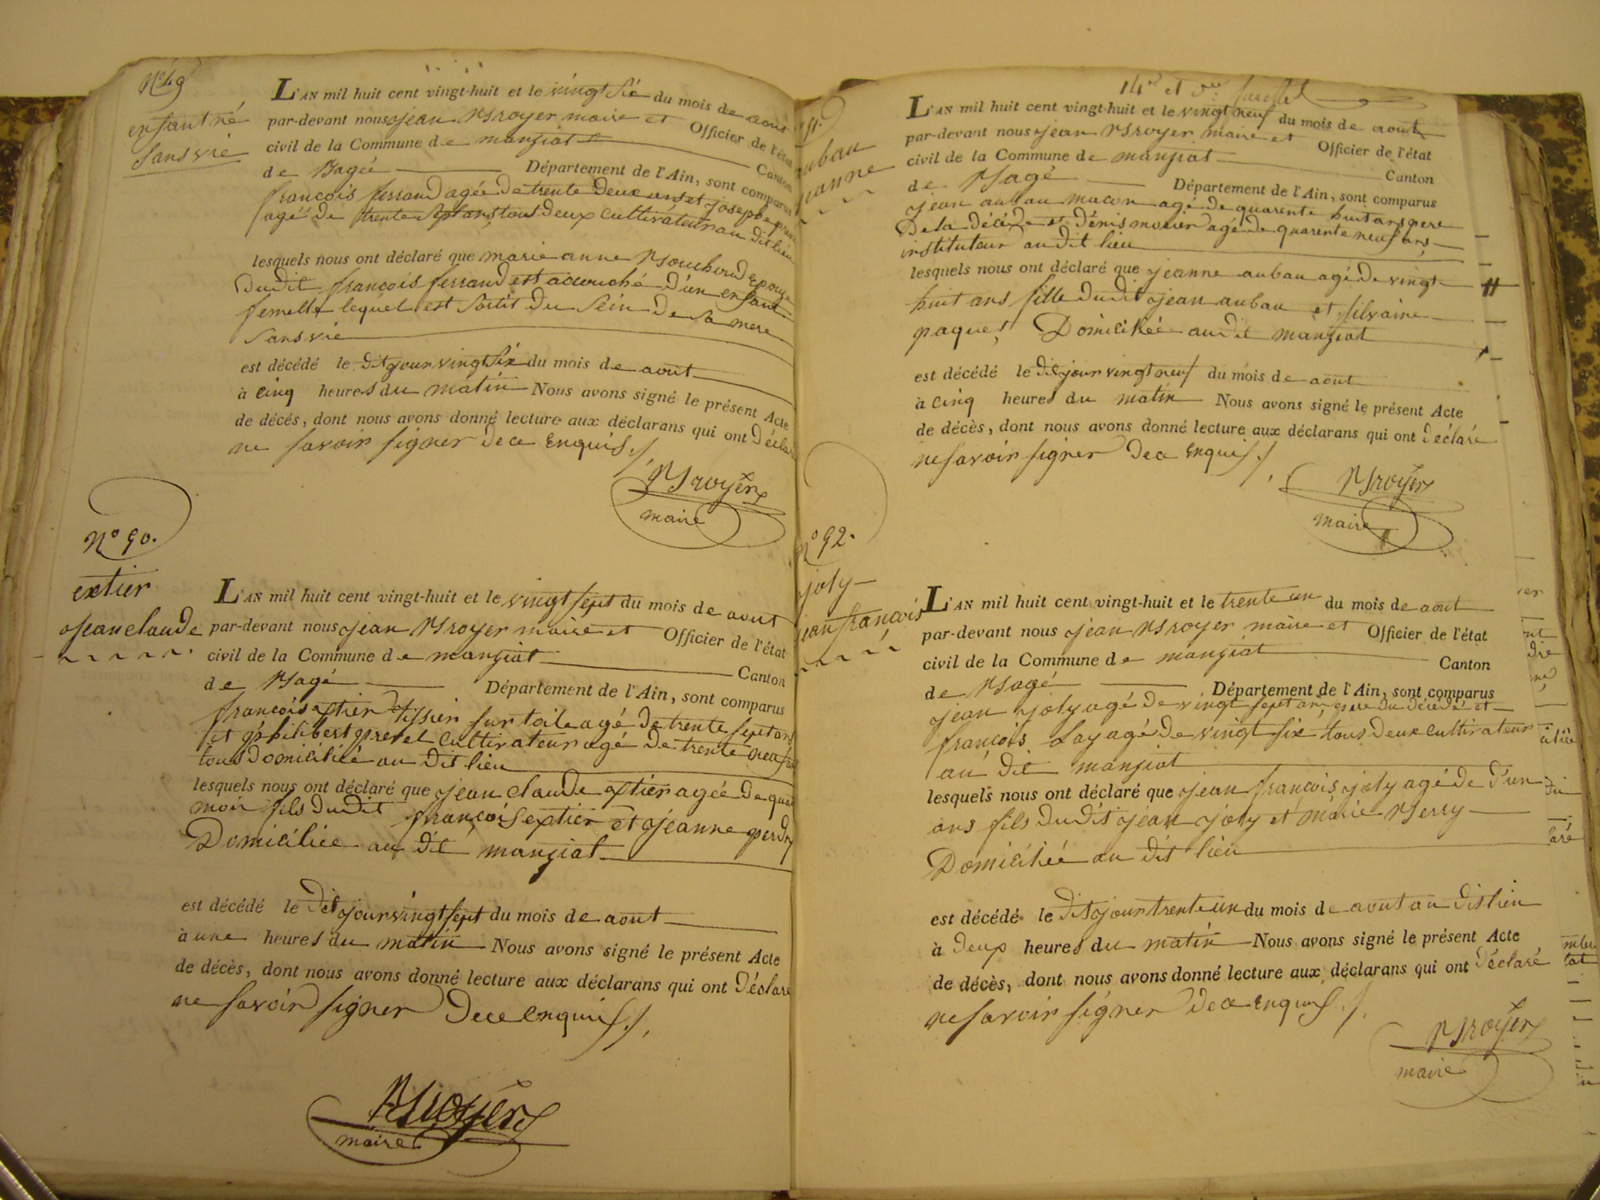 N° 49
enfant né
sans vie
L'AN mil huit cent vingt-huit et le vingt sie du mois de aout
par-devant nous jean Broyer maire et Officier de l'état
civil de la Commune de manziat Canton
de Bagé Département de l'Ain, sont comparus
françois ferrand agée de trente deux ans et joseph
agé de trente sept ans, tous deux cultivateur au dit lieu
lesquels nous ont déclaré que marie anne Bouchoud Epouse
du dit françois ferrand est accouché d'un enfant
femelle lequel est sortit du sein de sa mere
sans vie
est décédé le dit jour vingt six du mois de aout
à cinq heures du matin Nous avons signé le présent Acte
de décés, dont nous avons donné lecture aux déclarans qui ont déclaré
ne savoir signer de ce Enquis ./.
Broyer
maire
N° 90.
extier
jean claude
L'AN mil huit cent vingt-huit et le vingt sept du mois de aout
par-devant nous jean Broyer maire et Officier de l'état
civil de la Commune de manziat Canton
de Bagé Département de l'Ain, sont comparus
françois extier tissier sur toile agé de trente sept ans
et philibert prevel cultivateur agé de trente neuf
tous domiciliée au dit lieu
lesquels nous ont déclaré que jean claude extier agée de
mois fils du dit françois extier et jeanne
Domiciliée au dit manziat
est décédé le dit jour vingt sept du mois de aout
à une heures du matin Nous avons signé le présent Acte
de décès, dont nous avons donné lecture aux déclarans qui ont déclaré
ne savoir signer de ce enquis ./.
Broyer
maire
14e et
91
auban
jeanne
L'AN mil huit cent vingt-huit et le vingt neuf du mois de aout
par-devant nous jean Broyer maire et Officier de l'état
civil de la Commune de manziat Canton
de Bagé Département de l'Ain, sont comparus
jean aubau macon agé de quarente huit ans pere
De la décédé et dénis monier agé de quarente neuf ans
instituteur au dit lieu
lesquels nous ont déclaré que jeanne aubau agé de vingt
huit ans fille du dit jean aubau et silvaine
paques, Domiciliée au dit manziat
est décédé le dit jour vingt neuf du mois de aout
à cinq heures du matin Nous avons signé le présent Acte
de décès, dont nous avons donné lecture aux déclarans qui ont déclaré
ne savoir signer de ce enquis ./.
Broyer
maire
N° 92.
joly
jean françois
L'AN mil huit cent vingt-huit et le trente un du mois de aout
par-devant nous jean Broyer maire et Officier de l'état
civil de la Commune de manziat Canton
de Bagé Département de l'Ain, sont comparus
jean joly agé de vingt sept ans pere du décédé et
françois Lay agé de vingt six tous deux cultivateur
au dit manziat
lesquels nous ont déclaré que jean françois joly agé de d'un
ans fils du dit jean joly et marie Berry
Domiciliée au dit lieu
est décédé le dit jour trente un du mois de aout au dit lieu
à deux heures du matin Nous avons signé le présent Acte
de décès, dont nous avons donné lecture aux déclarans qui ont déclaré
ne savoir signer de ce enquis ./.
Broyer
maire